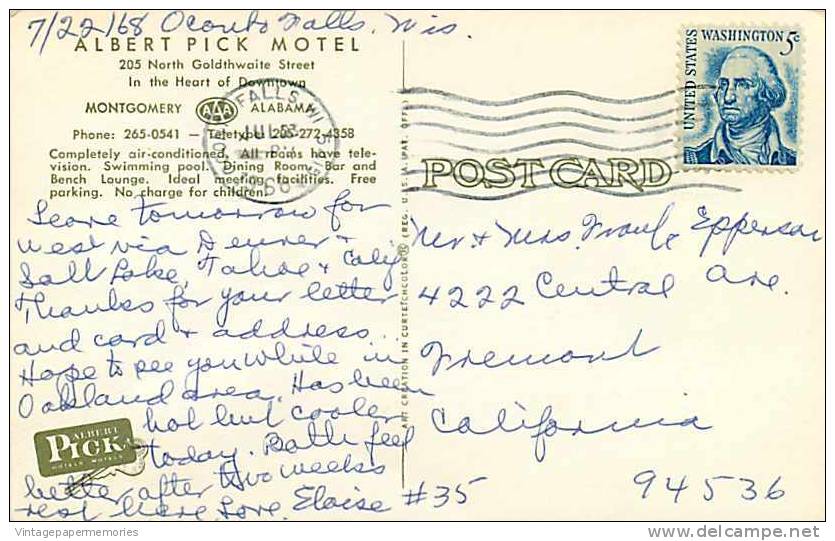 7/22/68 Oconto Falls, Wis.
ALBERT PICK MOTEL
205 North Goldthwaite Street
In the Heart of Downtown
MONTGOMERY AAA ALABAMA
Phone: 265-0541 — Teletype: 205-272-4358
Completely air-conditioned. All rooms have tele-
vision. Swimming pool. Dining Room, Bar and
Bench Lounge. Ideal meeting facilities. Free
parking. No charge for children.
Leave tomorrow for
west via Denver +
Salt Lake, Tahoe + Calif
Thanks for your letter
and card + address...
Hope to see you while in
Oakland area. Has been
hot but cooler
today. Both feel
better after two weeks
rest here. Love. Eloise #35
ALBERT
PICK
HOTELS MOTELS
ART CREATION IN CURTEICHCOLOR® (REG. U.S.A. PAT. OFF.)
FALLS, WIS
JUL
PM
1968
UNITED STATES
WASHINGTON 5c
POST CARD
Mr + Mrs. Frank Epperson
4222 Central Ave.
Fremont
California
94536
Vintagepapermemories
delcampe.net